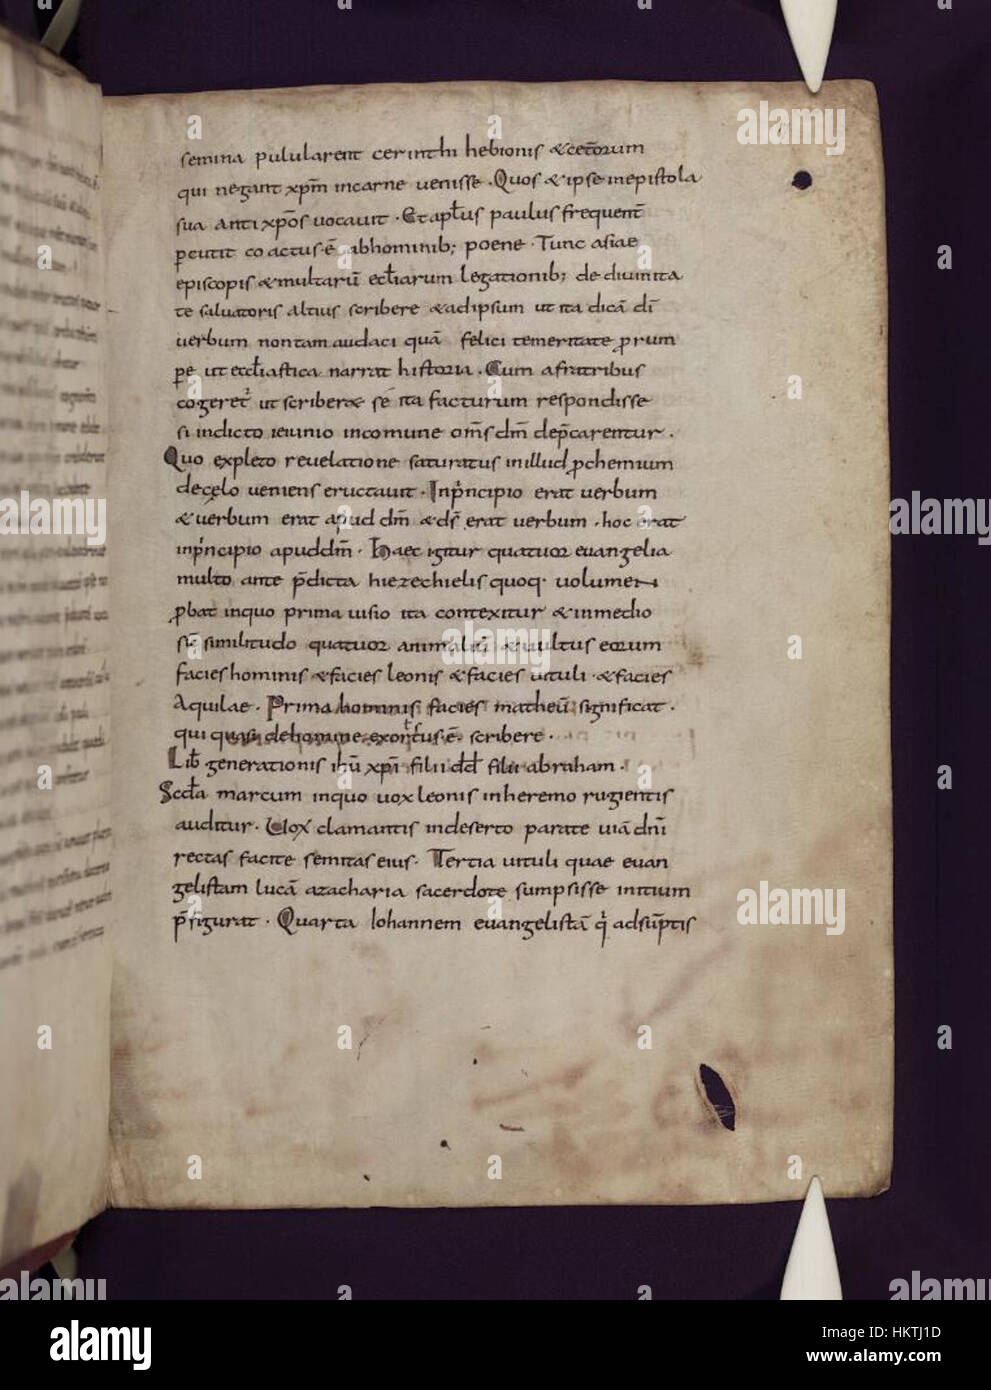 semina pulularent cerinthi hebionis &cet̄orum
qui negant xp̄m incarne uenisse · Quos &ipse inepistola
sua antixp̄os uocauit · Et apl̄us paulus frequent̄
ꝑcutit coactus·ē abhominib; poene · Tunc asiae
episcopis &multarū eccl̄iarum legationib; de diuinita
te saluatoris altius scribere &adipsum ut ita dicā dī
uerbum nontam audaci quā felici temeritate ꝓrum
pe ut eccl̄iastica narrat historia · Cum afratribus
cogeret᷑ ut scriber& sé ita facturum respondisse
si indicto ieiunio incomune om̄s dm̄ dep̄carentur ·
Quo expleto reuelatione saturatus inillud ꝓhemium
decęlo ueniens eructauit · Inp̄ncipio erat uerbum
& uerbum erat apud dm̄ & ds̄ erat uerbum · hoc erat
inp̄ncipio apuddm̄ · Haec igitur quatuor euangelia
multo ante p̄dicta hiezechielis quoq· uolumen
ꝓbat inquo prima uisio ita contexitur &inmedio
sic̄ similitudo quatuor animaliū &uultus eorum
facies hominis &facies leonis &facies uituli · &facies
Aquilae · Prima hominis facies matheū significat ·
qui quasi dehomine exortus·ē scribere ·
Lib̄ generationis ih̄u xp̄i filii dd̄ filii abraham ·
Scd̄a marcum inquo uox leonis inheremo rugientis
auditur · Uox clamantis indeserto parate uiā dn̄i
rectas facite semitas eius · Tertia uituli quae euan
gelistam lucā azacharia sacerdote sumpsisse initium
p̄figurat · Quarta Iohannem euangelistā q̇ adsūptis
alamy
a
Image ID: HKTJ1D
www.alamy.com